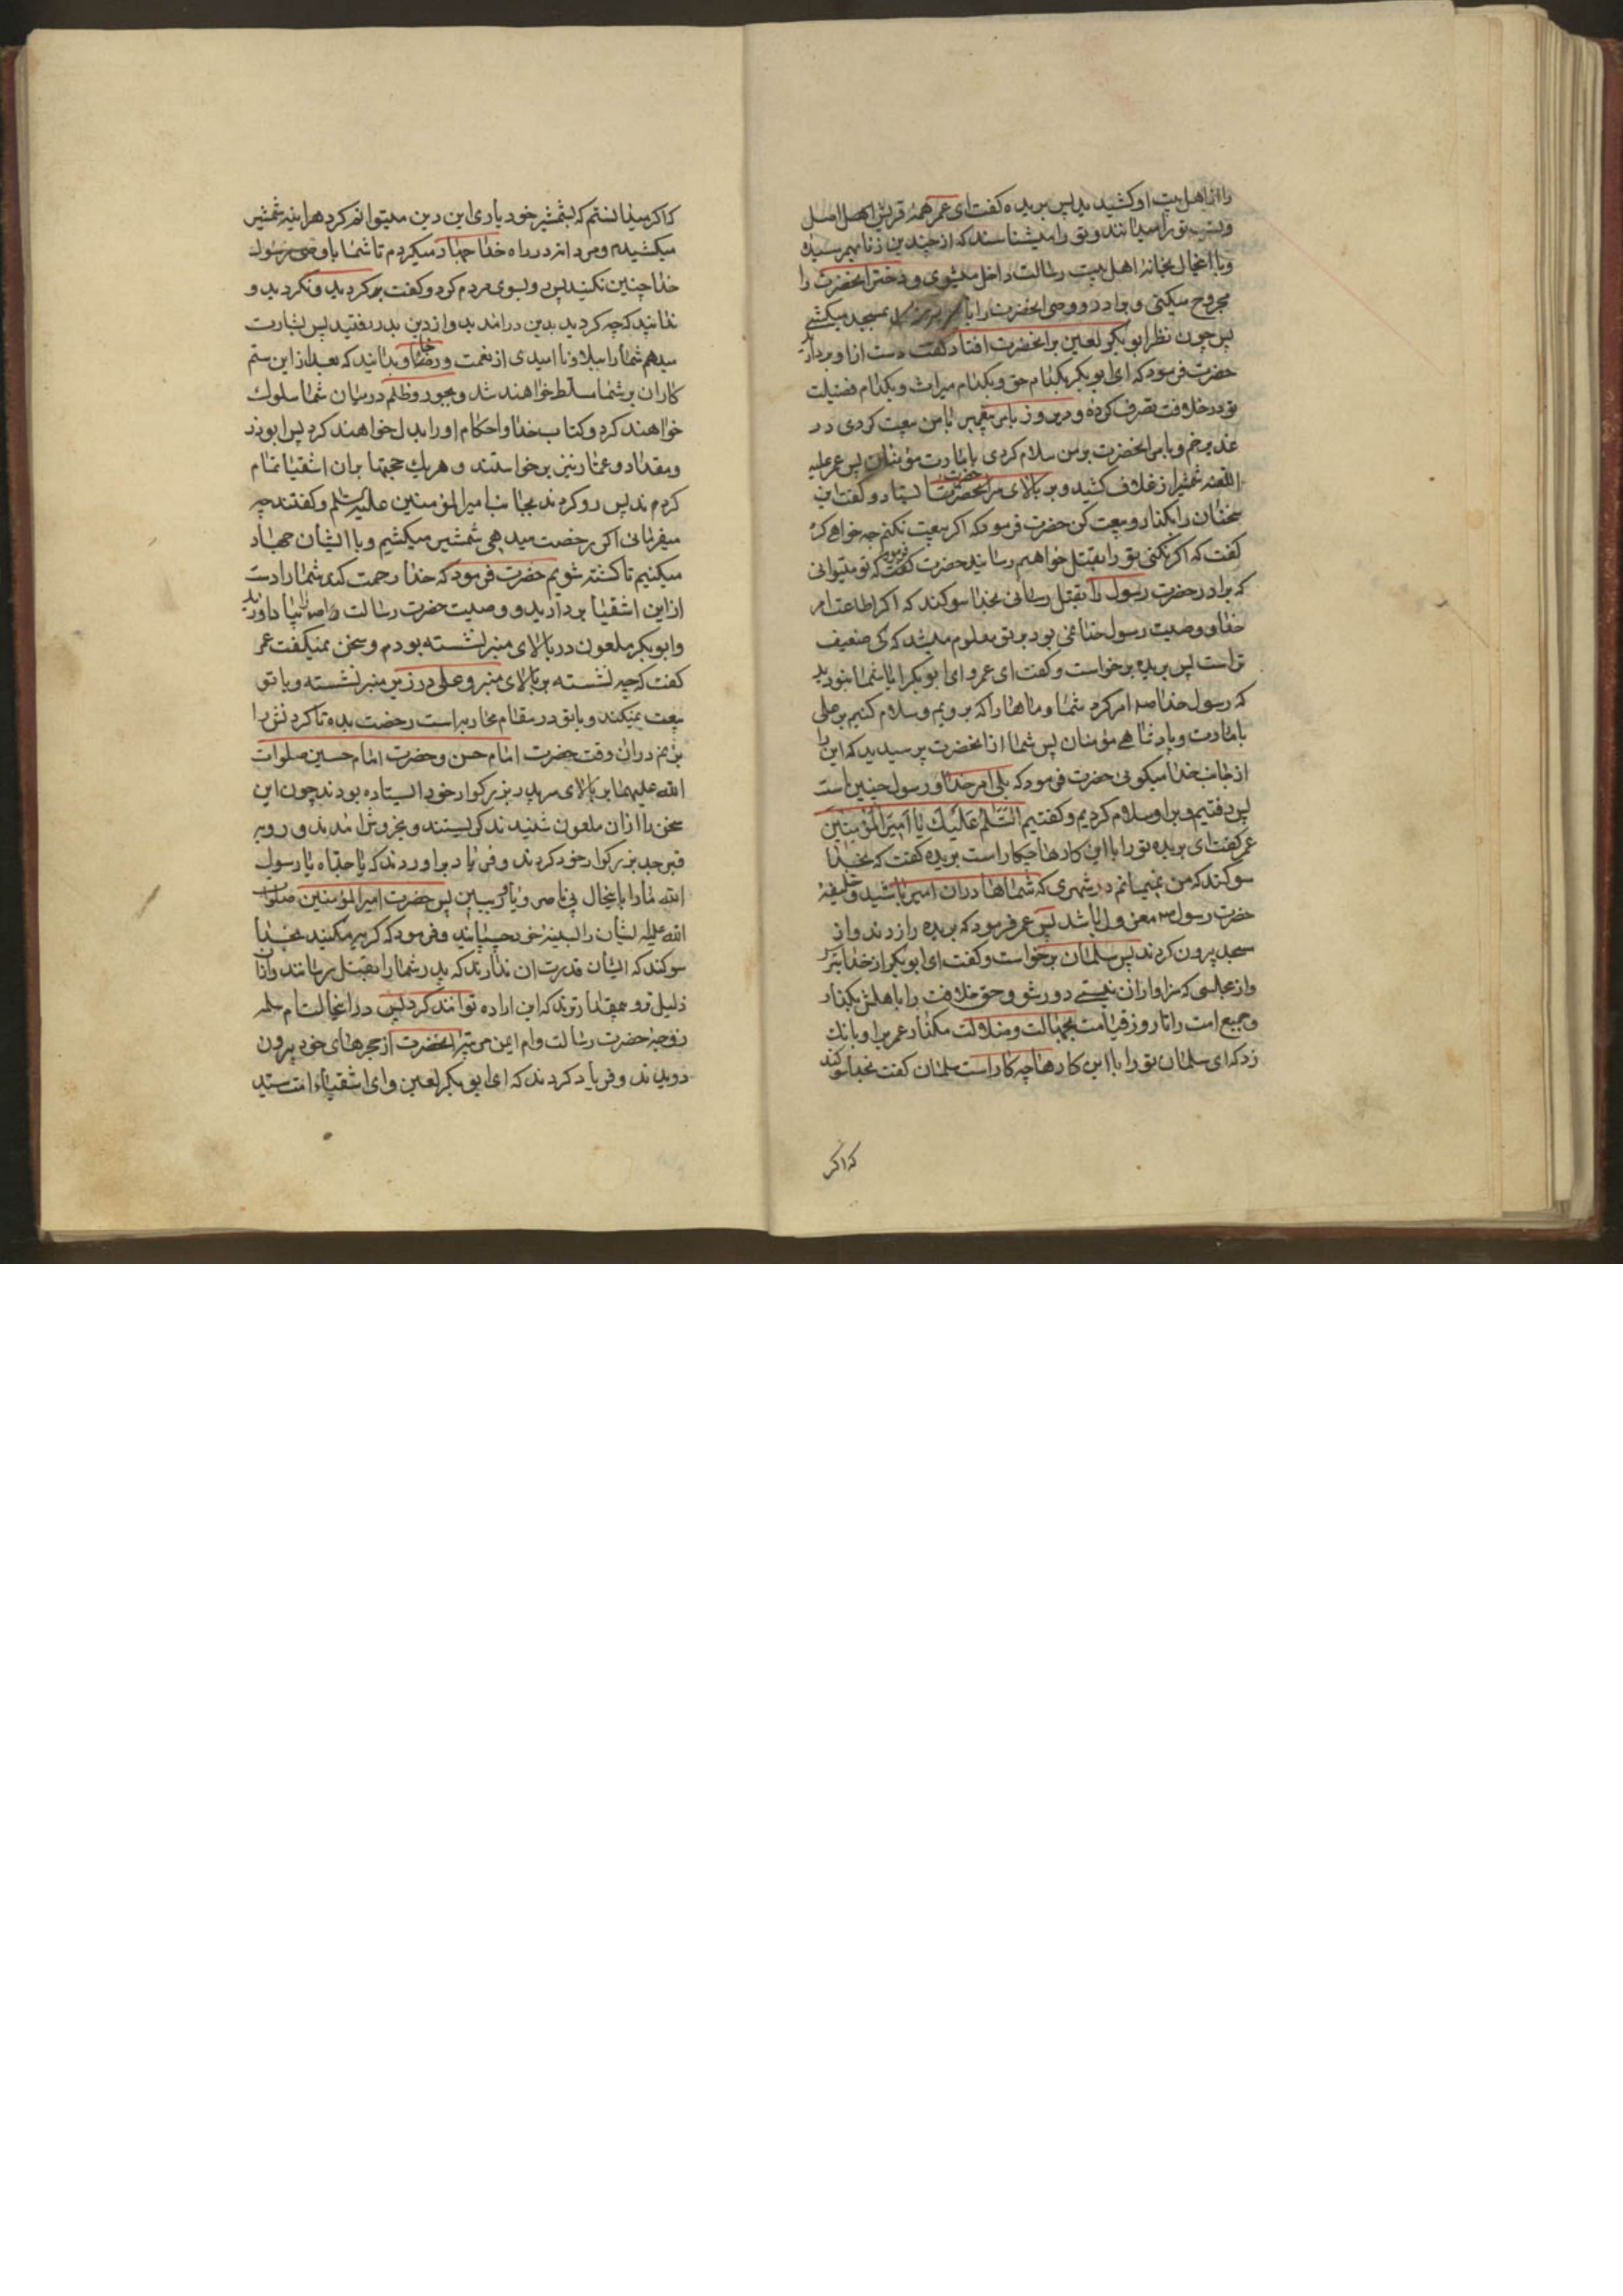 را از اهل بیت او کشیدید پس بریده گفت ای عمر همهٔ قریش اصل
و نسب تو را میدانند و تو را میشناسند که از چندین زنا بهم رسیدهٔ
و با اینحال بخانهٔ اهل بیت رسالت داخل میشوی و دختر انحضرت را
مجروح میکنی و برادر و وصی انحضرت را با بمسجد میکشی
پس چون نظر ابو بکر لعین بر انحضرت افتاد گفت دست از او بردارید
حضرت فرمود که ای ابو بکر بکدام حق و بکدام میراث و بکدام فضیلت
تو در خلافت تصرف کردهٔ و دیروز بامر پیغمبر با من بیعت کردی در
غدیر خم و بامر انحضرت بر من سلام کردی بامارت مؤمنان پس عمر علیه
اللعنه شمشیر از غلاف کشید و بر بالای سر انحضرت ایستاد و گفت این
سخنان را بگذار و بیعت کن حضرت فرمود که اگر بیعت نکنم چه خواهی کرد
گفت که اگر نکنی تو را بقتل خواهیم رسانید حضرت فرمود که تو میتوانی
که برادر حضرت رسول را بقتل رسانی بخدا سوکند که اگر اطاعت امر
خدا و وصیت رسول خدا نمی بود بر تو معلوم میشد که کی ضعیف
تر است پس بریده برخواست و گفت ای عمر و ای ابو بکر ایا شما نبودید
که رسول خدا صه امر کرد شما و ماها را که برویم و سلام کنیم بر علی
بامارت و پادشاهی مؤمنان پس شما از انحضرت پرسیدید که این را
از جانب خدا میکوئی حضرت فرمود که بلی امر خدا و رسول چنین است
پس رفتیم و بر او سلام کردیم و گفتیم السَّلامُ عَلَیْكَ یا اَمِیرَ الْمُؤْمِنِینَ
عمر گفت ای بریده تو را با این کارها چکار است بریده گفت که بخدا
سوکند که من نمیمانم در شهری که شماها دران امیر باشید و خلیفهٔ
حضرت رسول صه معزول باشد پس عمر فرمود که بریده را زدند و از
مسجد بیرون کردند پس سلمان برخواست و گفت ای ابو بکر از خدا بترس
و از مجلسی که سزاوار ان نیستی دور شو و حق خلافت را با هلش بگذار
و جمیع امت را تا روز قیامت بجهالت و ضلالت مگذار عمر بر او بانك
زد که ای سلمان تو را با این کارها چه کار است سلمان گفت بخدا سوکند
که اکر
که اکر میدانستم که بشمشیر خود یاری این دین میتوانم کرد هراینه شمشیر
میکشیدم و مردانه در راه خدا جهاد میکردم تا شما با وصی رسول
خدا چنین نکنید پس رو بسوی مردم کرد و گفت که کردید و نکردید و
ندانید که چه کردید بدین درامدید و از دین بدر رفتید پس بشارت
میدهم شما را ببلا و نا امیدی از نعمت و رخا و بدانید که بعد از این ستم
کاران بر شما مسلّط خواهند شد و بجور و ظلم در میان شما سلوك
خواهند کرد و کتاب خدا و احکام او را بدل خواهند کرد پس ابوذر
و مقداد و عمّار نیز برخواستند و هریك حجتها بران اشقیا تمام
کردند پس رو کردند بجانب امیر المؤمنین علیه السّلم و گفتند چه
میفرمائی اکر رخصت میدهی شمشیر میکشیم و با ایشان جهاد
میکنیم تا کشته شویم حضرت فرمود که خدا رحمت کند شما را دست
از این اشقیا بردارید و وصیت حضرت رسالت را صه بیاد اورید
و ابو بکر ملعون در بالای منبر نشسته بودم و سخن نمیکفت عمر
گفت که چه نشسته بر بالای منبر و علی در زیر منبر نشسته و با تو
بیعت نمیکند و با تو در مقام محاربه است رخصت بده تا کردنش را
بزنم دران وقت حضرت امام حسن و حضرت امام حسین صلوات
الله علیهما بر بالای سر پدر بزرکوار خود ایستاده بودند چون این
سخن را ازان ملعون شنیدند کریستند و بخروش امدند و رو به
قبر جد بزرکوار خود کردند و فریاد براوردند که یا جدّاه یا رسول
الله ما را باینحال بی ناصر و یاور ببین پس حضرت امیر المؤمنین صلوات
الله علیه ایشان را بسینهٔ خود چسبانید و فرمود که کریه مکنید بخدا
سوکند که ایشان قدرت ان ندارند که پدر شما را بقتل برسانند و ازان
ذلیل تر و بیمقدار ترند که این اراده توانند کرد پس دران حالت ام سلمه
زوجهٔ حضرت رسالت و ام ایمن مربیهٔ انحضرت از حجرهای خود بیرون
دویدند و فریاد کردند که ای ابو بکر لعین و ای اشقیاء امت